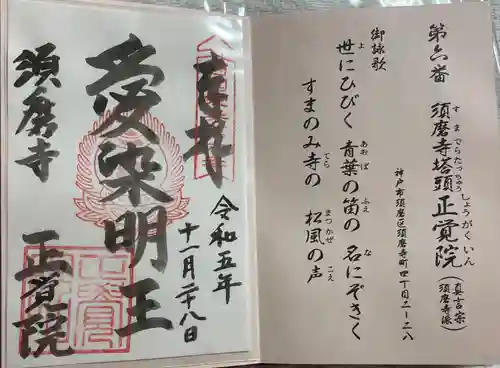 第六番 須磨寺塔頭 正覚院 (真言宗須磨寺派)
すまでらたっちゅう しょうがくいん
神戸市須磨区須磨寺町四丁目二ー二八
御詠歌
世にひびく 青葉の笛の 名にぞきく
よ あおば ふえ な
すまのみ寺の 松風の声
でら まつかぜ こえ
奉拝
令和五年
十一月二十八日
愛染明王
須磨寺
正覚院